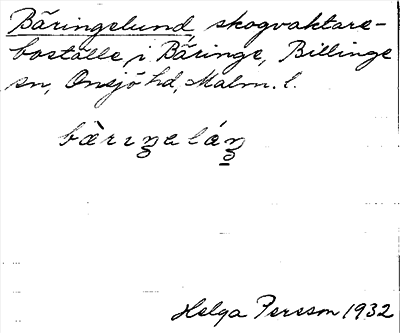 Bäringelund, skogvaktare-
boställe i Bäringe, Billinge
sn, Onsjö hd, Malm. l.
Helga Persson 1932